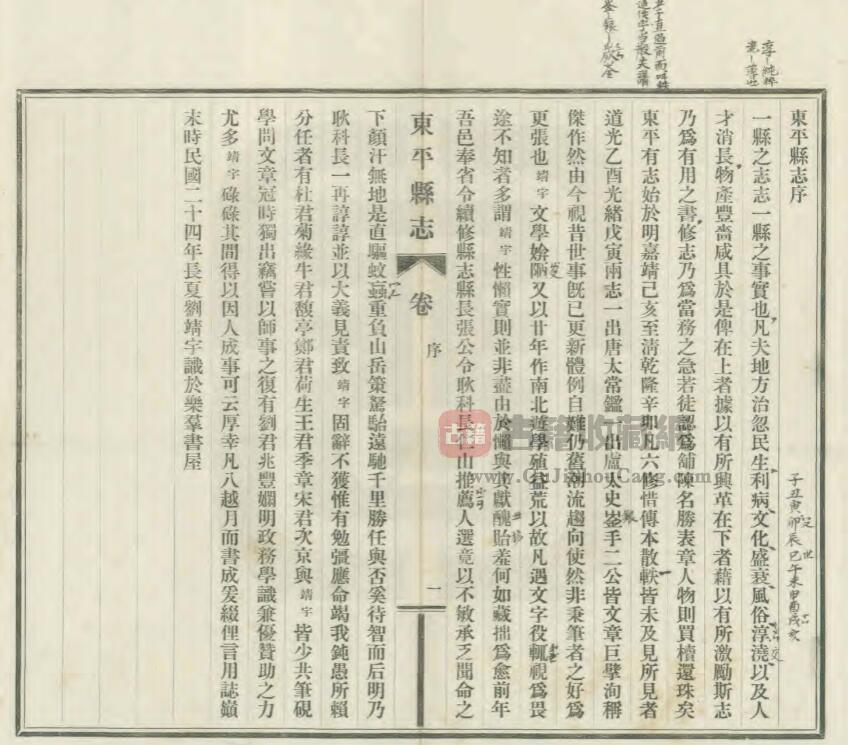 東平縣志序
一縣之志志一縣之事實也凡夫地方治忽民生利病文化盛衰風俗淳澆以及人
才消長物產豐嗇咸具於是俾在上者據以有所興革在下者藉以有所激勵斯志
乃爲有用之書修志乃爲當務之急若徒認爲舖陳名勝表章人物則買櫝還珠矣
東平有志始於明嘉靖己亥至淸乾隆辛卯凡六修惜傳本散軼皆未及見所見者
道光乙酉光緒戊寅兩志一出唐太常鑑一出盧太史崟手二公皆文章巨擘洵稱
傑作然由今視昔世事旣已更新體例自難仍舊潮流趨向使然非秉筆者之好爲
更張也靖宇文學媕陋又以廿年作南北遊學殖益荒以故凡遇文字役輒視爲畏
途不知者多謂靖宇性懶實則並非盡由於懶與其獻醜貽羞何如藏拙爲愈前年
吾邑奉省令續修縣志縣長張公令耿科長仁山推薦人選竟以不敏承乏聞命之
東平縣志 卷 序 一
下顏汗無地是直驅蚊蝱重負山岳策駑駘遠馳千里勝任與否奚待智而后明乃
耿科長一再諄諄並以大義見責致靖宇固辭不獲惟有勉彊應命竭我鈍愚所賴
分任者有杜君菊緣牛君馥亭鄭君荷生王君季章宋君次京與靖宇皆少共筆硯
學問文章冠時獨出竊嘗以師事之復有劉君兆豐嫻明政務學識兼優贊助之力
尤多靖宇碌碌其間得以因人成事可云厚幸凡八越月而書成爰綴俚言用誌巓
末時民國二十四年長夏劉靖宇識於樂羣書屋
子丑寅卯辰巳午未申酉戌亥
古籍
古籍收藏網
www.GuJiShouCang.com